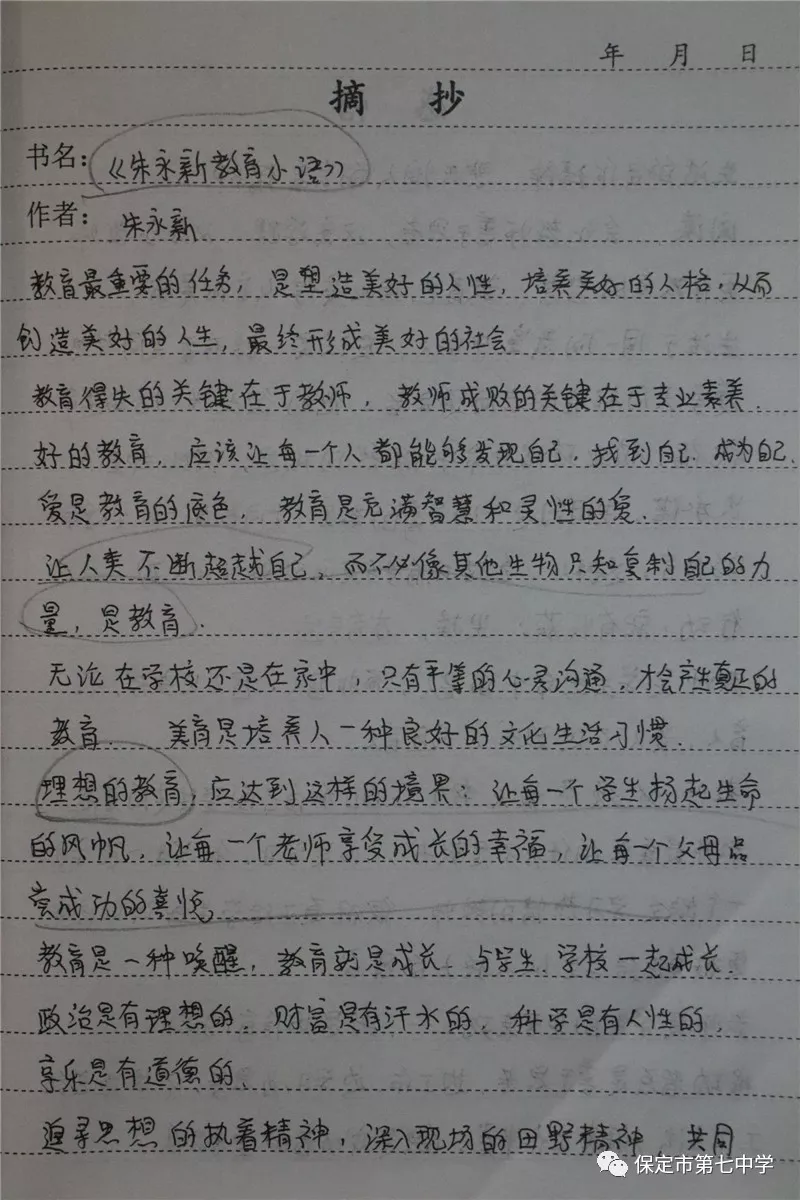 年 月 日
摘 抄
书名：《朱永新教育小语》
作者：朱永新
教育最重要的任务，是塑造美好的人性，培养美好的人格，从而
创造美好的人生，最终形成美好的社会
教育得失的关键在于教师，教师成败的关键在于专业素养.
好的教育，应该让每一个人都能够发现自己，找到自己.成为自己.
爱是教育的底色，教育是充满智慧和灵性的爱.
让人类不断超越自己，而不必像其他生物只知复制自己的力
量，是教育.
无论在学校还是在家中，只有平等的心灵沟通，才会产生真正的
教育. 美育是培养人一种良好的文化生活习惯.
理想的教育，应达到这样的境界：让每一个学生扬起生命
的风帆，让每一个老师享受成长的幸福，让每一个父母品
尝成功的喜悦，
教育是一种唤醒，教育就是成长、与学生、学校一起成长.
政治是有理想的，财富是有汗水的，科学是有人性的，
享乐是有道德的、
追寻思想的执着精神，深入现场的田野精神 共同
保定市第七中学